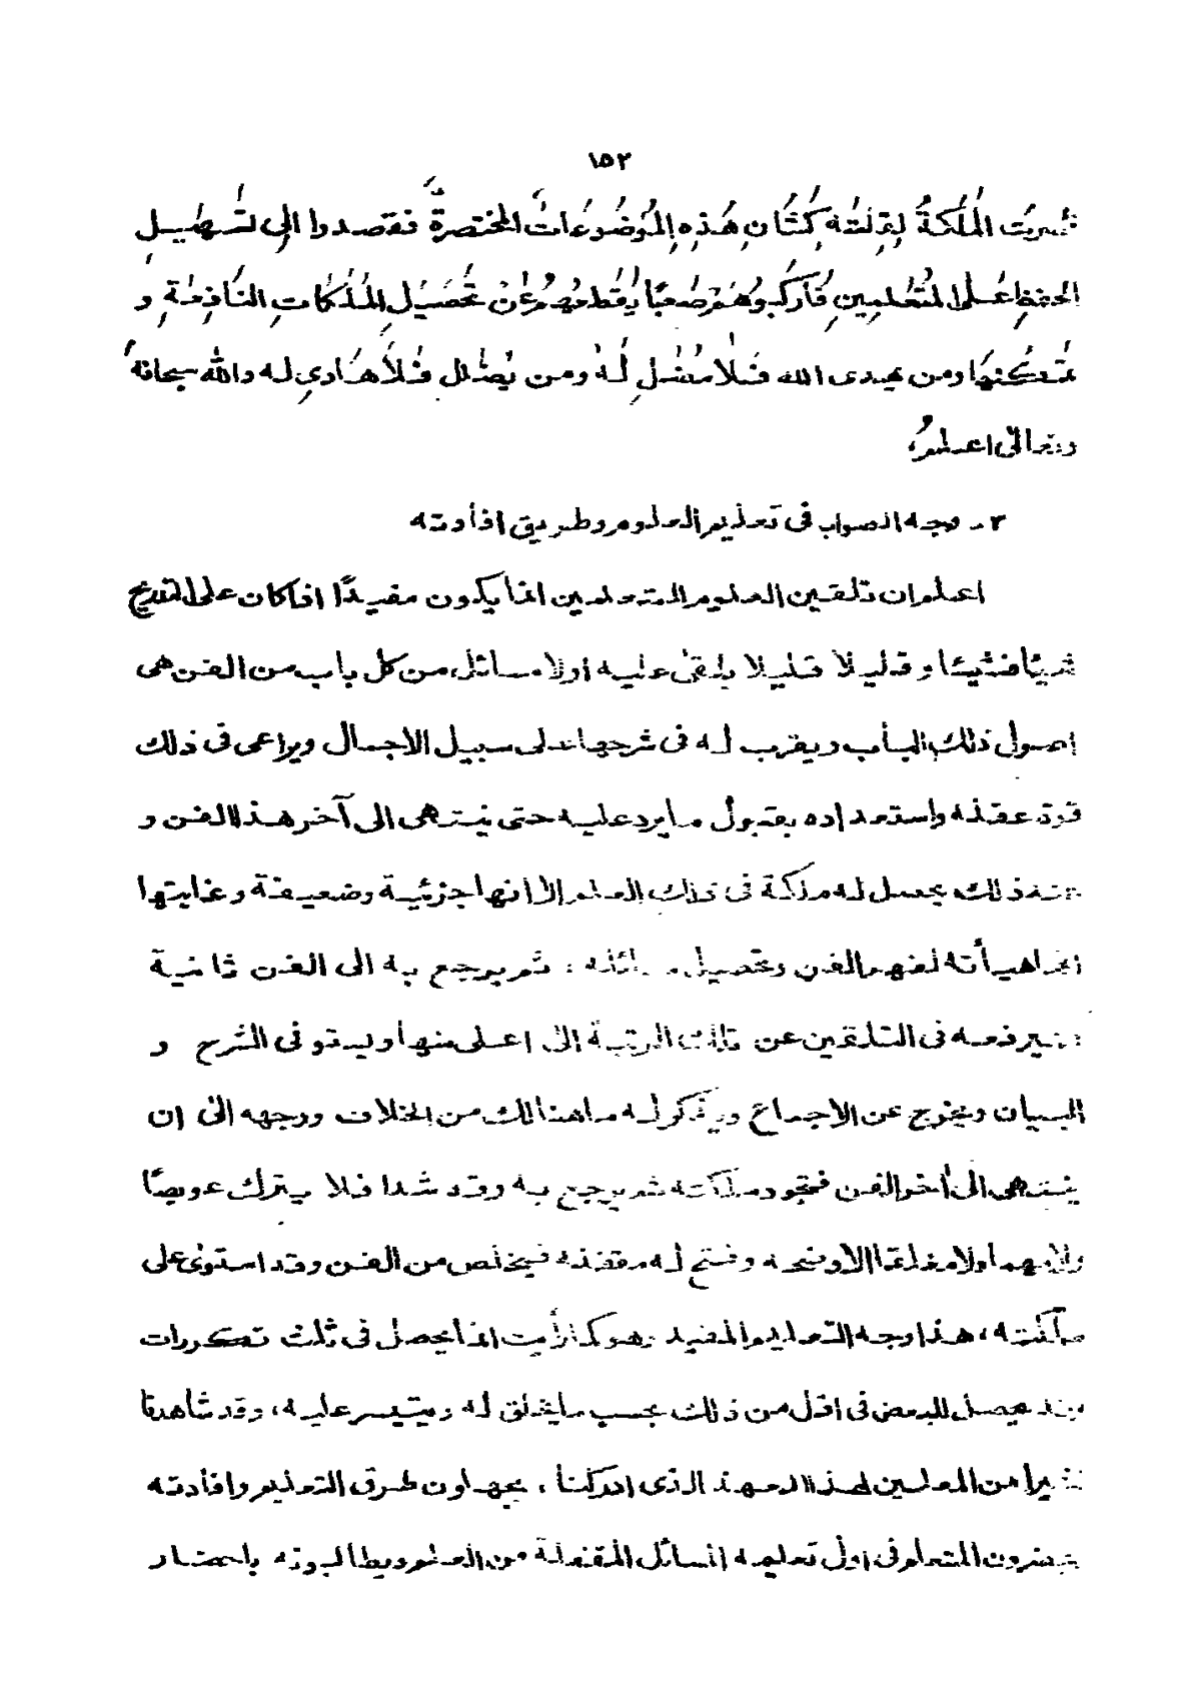 ١٥٢
قصرت المَلَكةُ لِقِلّتِه كَشَأنِ هٰذِهِ المَوضُوعَات المختصرةِ فقصدوا الى تسهيل
الحفظِ عَلى المتعلمين فَأركبوهُم صَعبًا يقطعهُم عَن تَحصيلِ المَلَكاتِ النّافِعَةِ و
تَمَكُّنِهَا ومن يهدى الله فَلا مُضِلّ لَهُ ومن يُضلل فَلاَ هَادِي له والله سبحانهُ
وتعالىٰ اعلمُ،
٣ ـ وجه الصواب فى تعليم العلوم وطريق افأدته
اعلم ان تلقين العلوم للمتعلمين انما يكون مفيدًا اذا كان على التدريج
شيئًا فشيئا وقليلاً قليلا يلقىٰ عليه اولا مسائل من كل باب من الفن هى
اصول ذلك البأب ويقرب له فى شرحها على سبيل الاجمال ويراعى فى ذلك
قوة عقله واستعداده بقبول مايرد عليه حتى ينتهى الى آخر هذا الفن و
عند ذلك يحصل له ملكة فى ذلك العلم الا انها جزئية وضعيفة وغايتها
انها هيأته لفهم الفن وتحصيل مسائله ، ثم يرجع به الى الفن ثانية
فيرفعه فى التلقين عن تلك الرتبة الىٰ اعلى منها ويستوفى الشرح و
البيان ويخرج عن الاجماع ويذكر له ما هنالك من الخلاف ووجهه الىٰ ان
ينتهى الىٰ أخر الفن فتجود ملكته ثم يرجع به وقد شدا فلا يترك عويصًا
ولا مبهما ولا مغلقا الا وضحه وفتح له مقفله فيخلص من الفن وقد استوىٰ على
ملكته، هذا وجه التعليم المفيد وهو كما رأيت انما يحصل فى ثلث تكررات
وقد يحصل للبعض فى اقل من ذلك بحسب ما يخلق له ويتيسر عليه، وقد شاهدنا
كثيرا من المعلمين لهذا العهد الذى ادركنا ، يجهلون طرق التعليم وافأدته
يحضرون المتعلم فى اول تعليمه المسائل المقفلة من العلم ويطالبونه باحضار